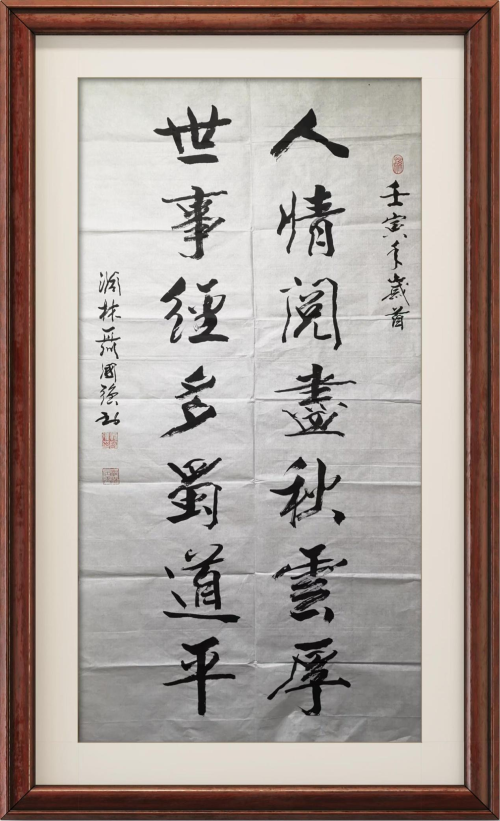 壬寅年歲首
人情閱盡秋雲厚
世事經多蜀道平
林聶國强书